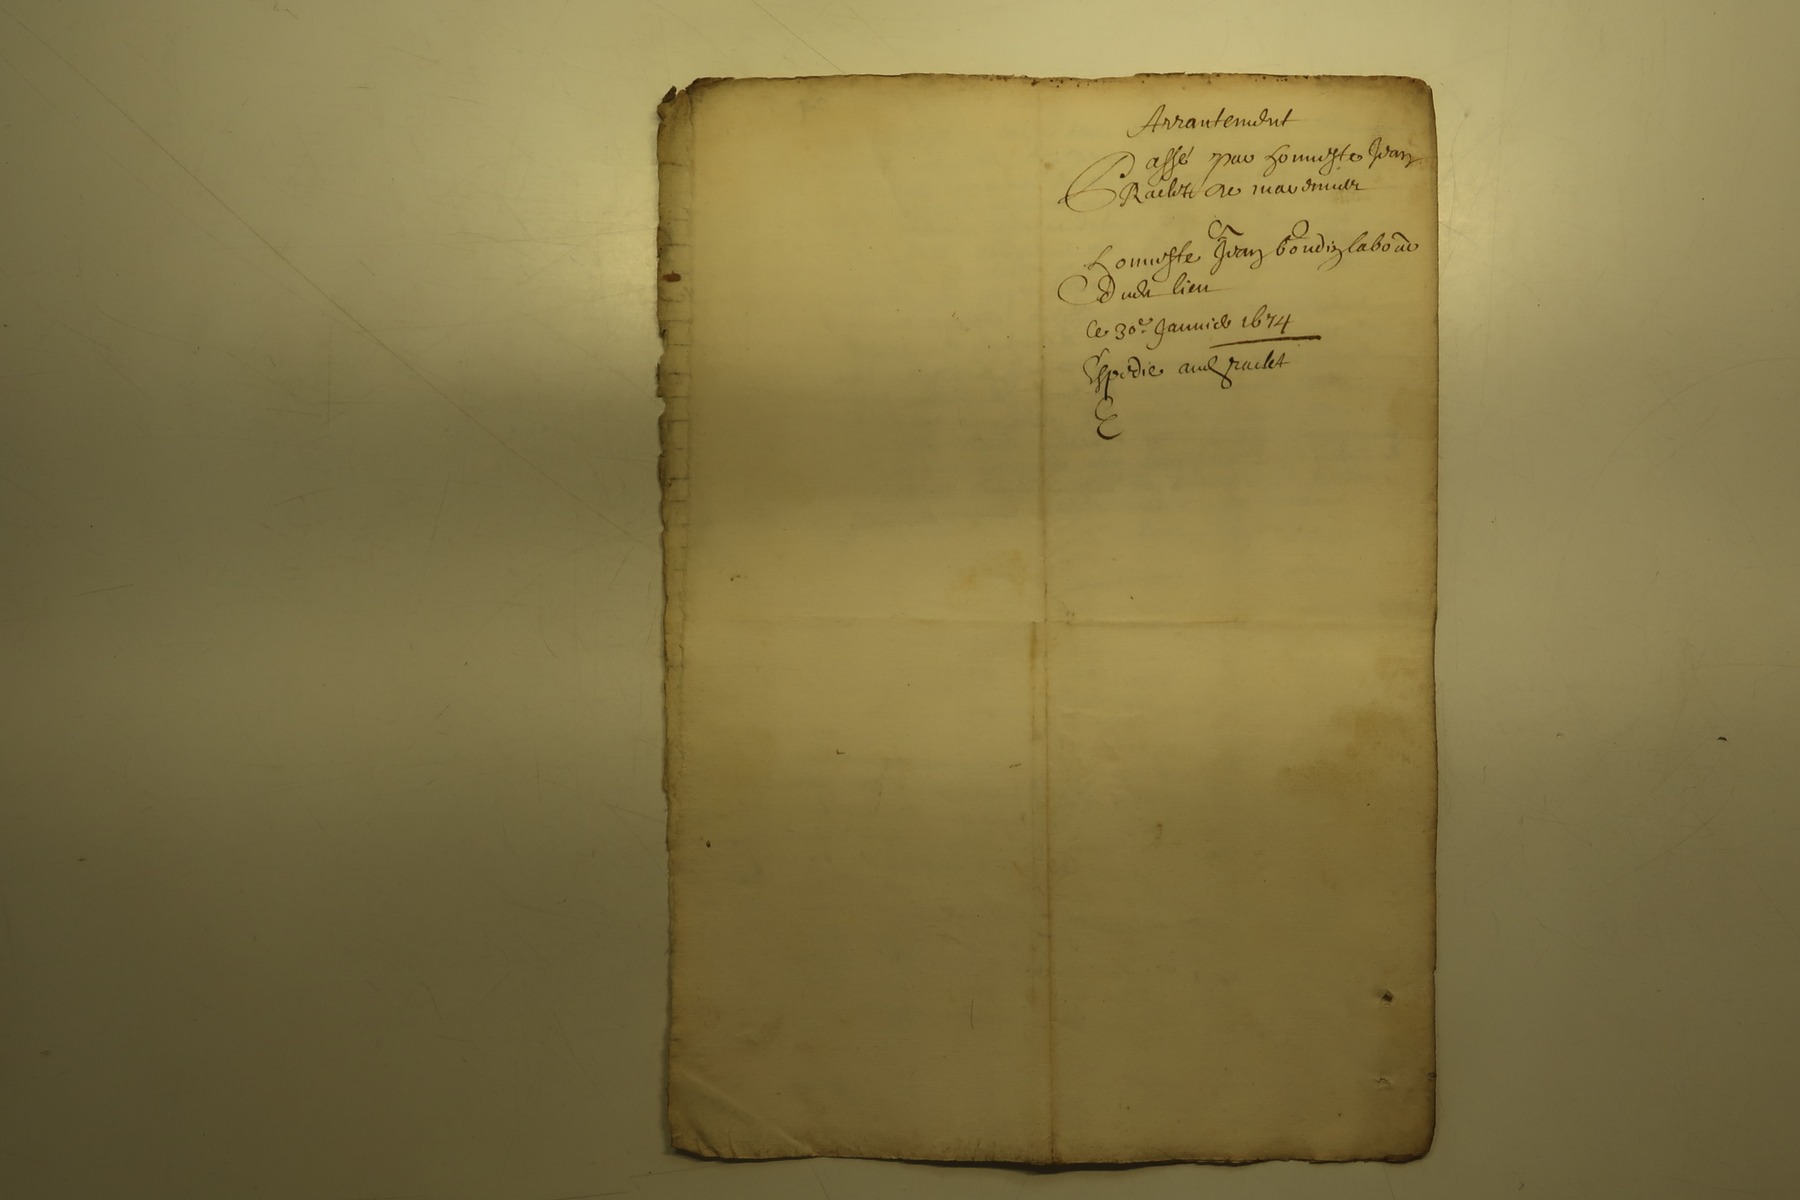 Arrantement
Passé par honneste Jean
Raclet de
A
honneste Jean boudin labour
Dudt lieu
Ce 30e Janvier 1674
Expedie aud Raclet